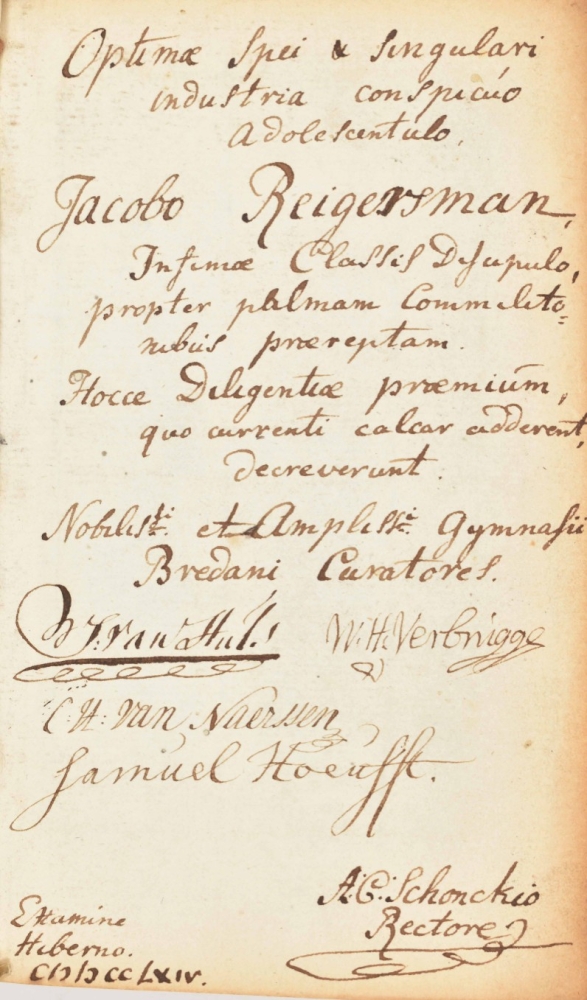 Optimæ Spei & singulari
industria conspicúo
Adolescentulo,
Jacobo Reigersman,
Infimæ Classis Discipulo,
propter palmam Commilito=
nibus præreptam.
Hocce Diligentiæ præmiúm,
quo currenti calcar adderent,
decreverunt.
Nobiliss:mi et Ampliss:mi Gymnasii
Bredani Curatores.
van W:H:Verbrúgge
C H: van Naerssen
Samuel Hoeufft.
A:C:Schonckio
Rectore
Examine
Hiberno.
CIↃIↃCCLXIV.